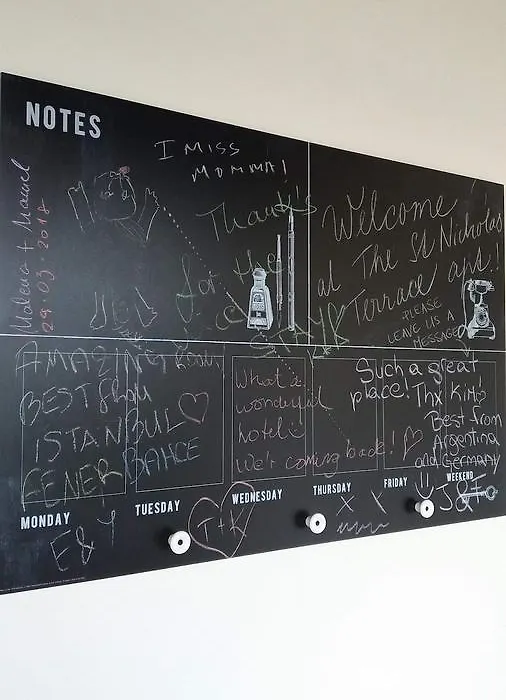 NOTES
I MISS
MOMMA!
29.03.2018
Thank's
for the
STAY
Welcome
at The St Nicholas
Terrace aps!!
PLEASE
LEAVE US A
MESSAGE
AMAZING
BEST from
ISTANBUL
FENER BAHCE
What a
wonderful
hotel
We'r coming back!
Such a great
place! Thx
Best from
Argentina
and Germany
J&F
MONDAY
TUESDAY
WEDNESDAY
THURSDAY
FRIDAY
WEEKEND
E&Y
T+K
X X